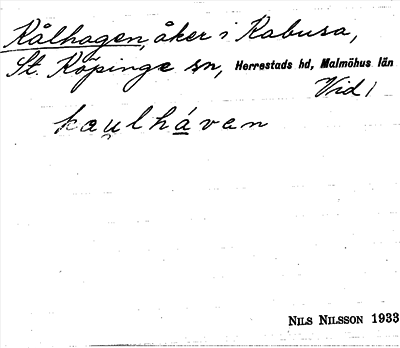 Kålhagen, åker i Kabusa,
St. Köpinge sn, Herrestads hd, Malmöhus län
Vid 1
kau̯lhávan
NILS NILSSON 1933